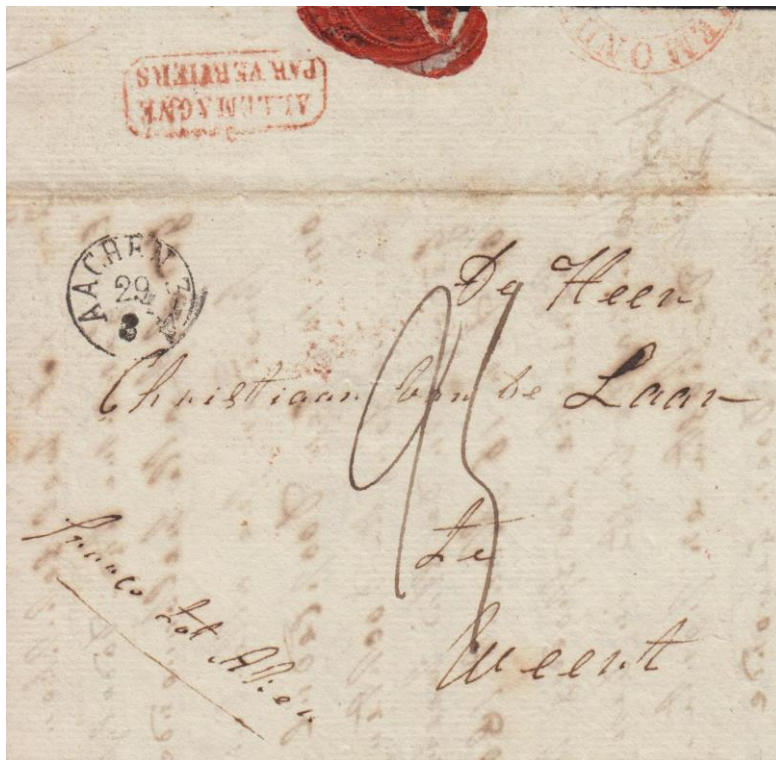 ALLEMAGNE
PAR VERVIERS
AACHEN
29
8
De Heer
Christiaan van de Laar
95
te
Weert
franco tot